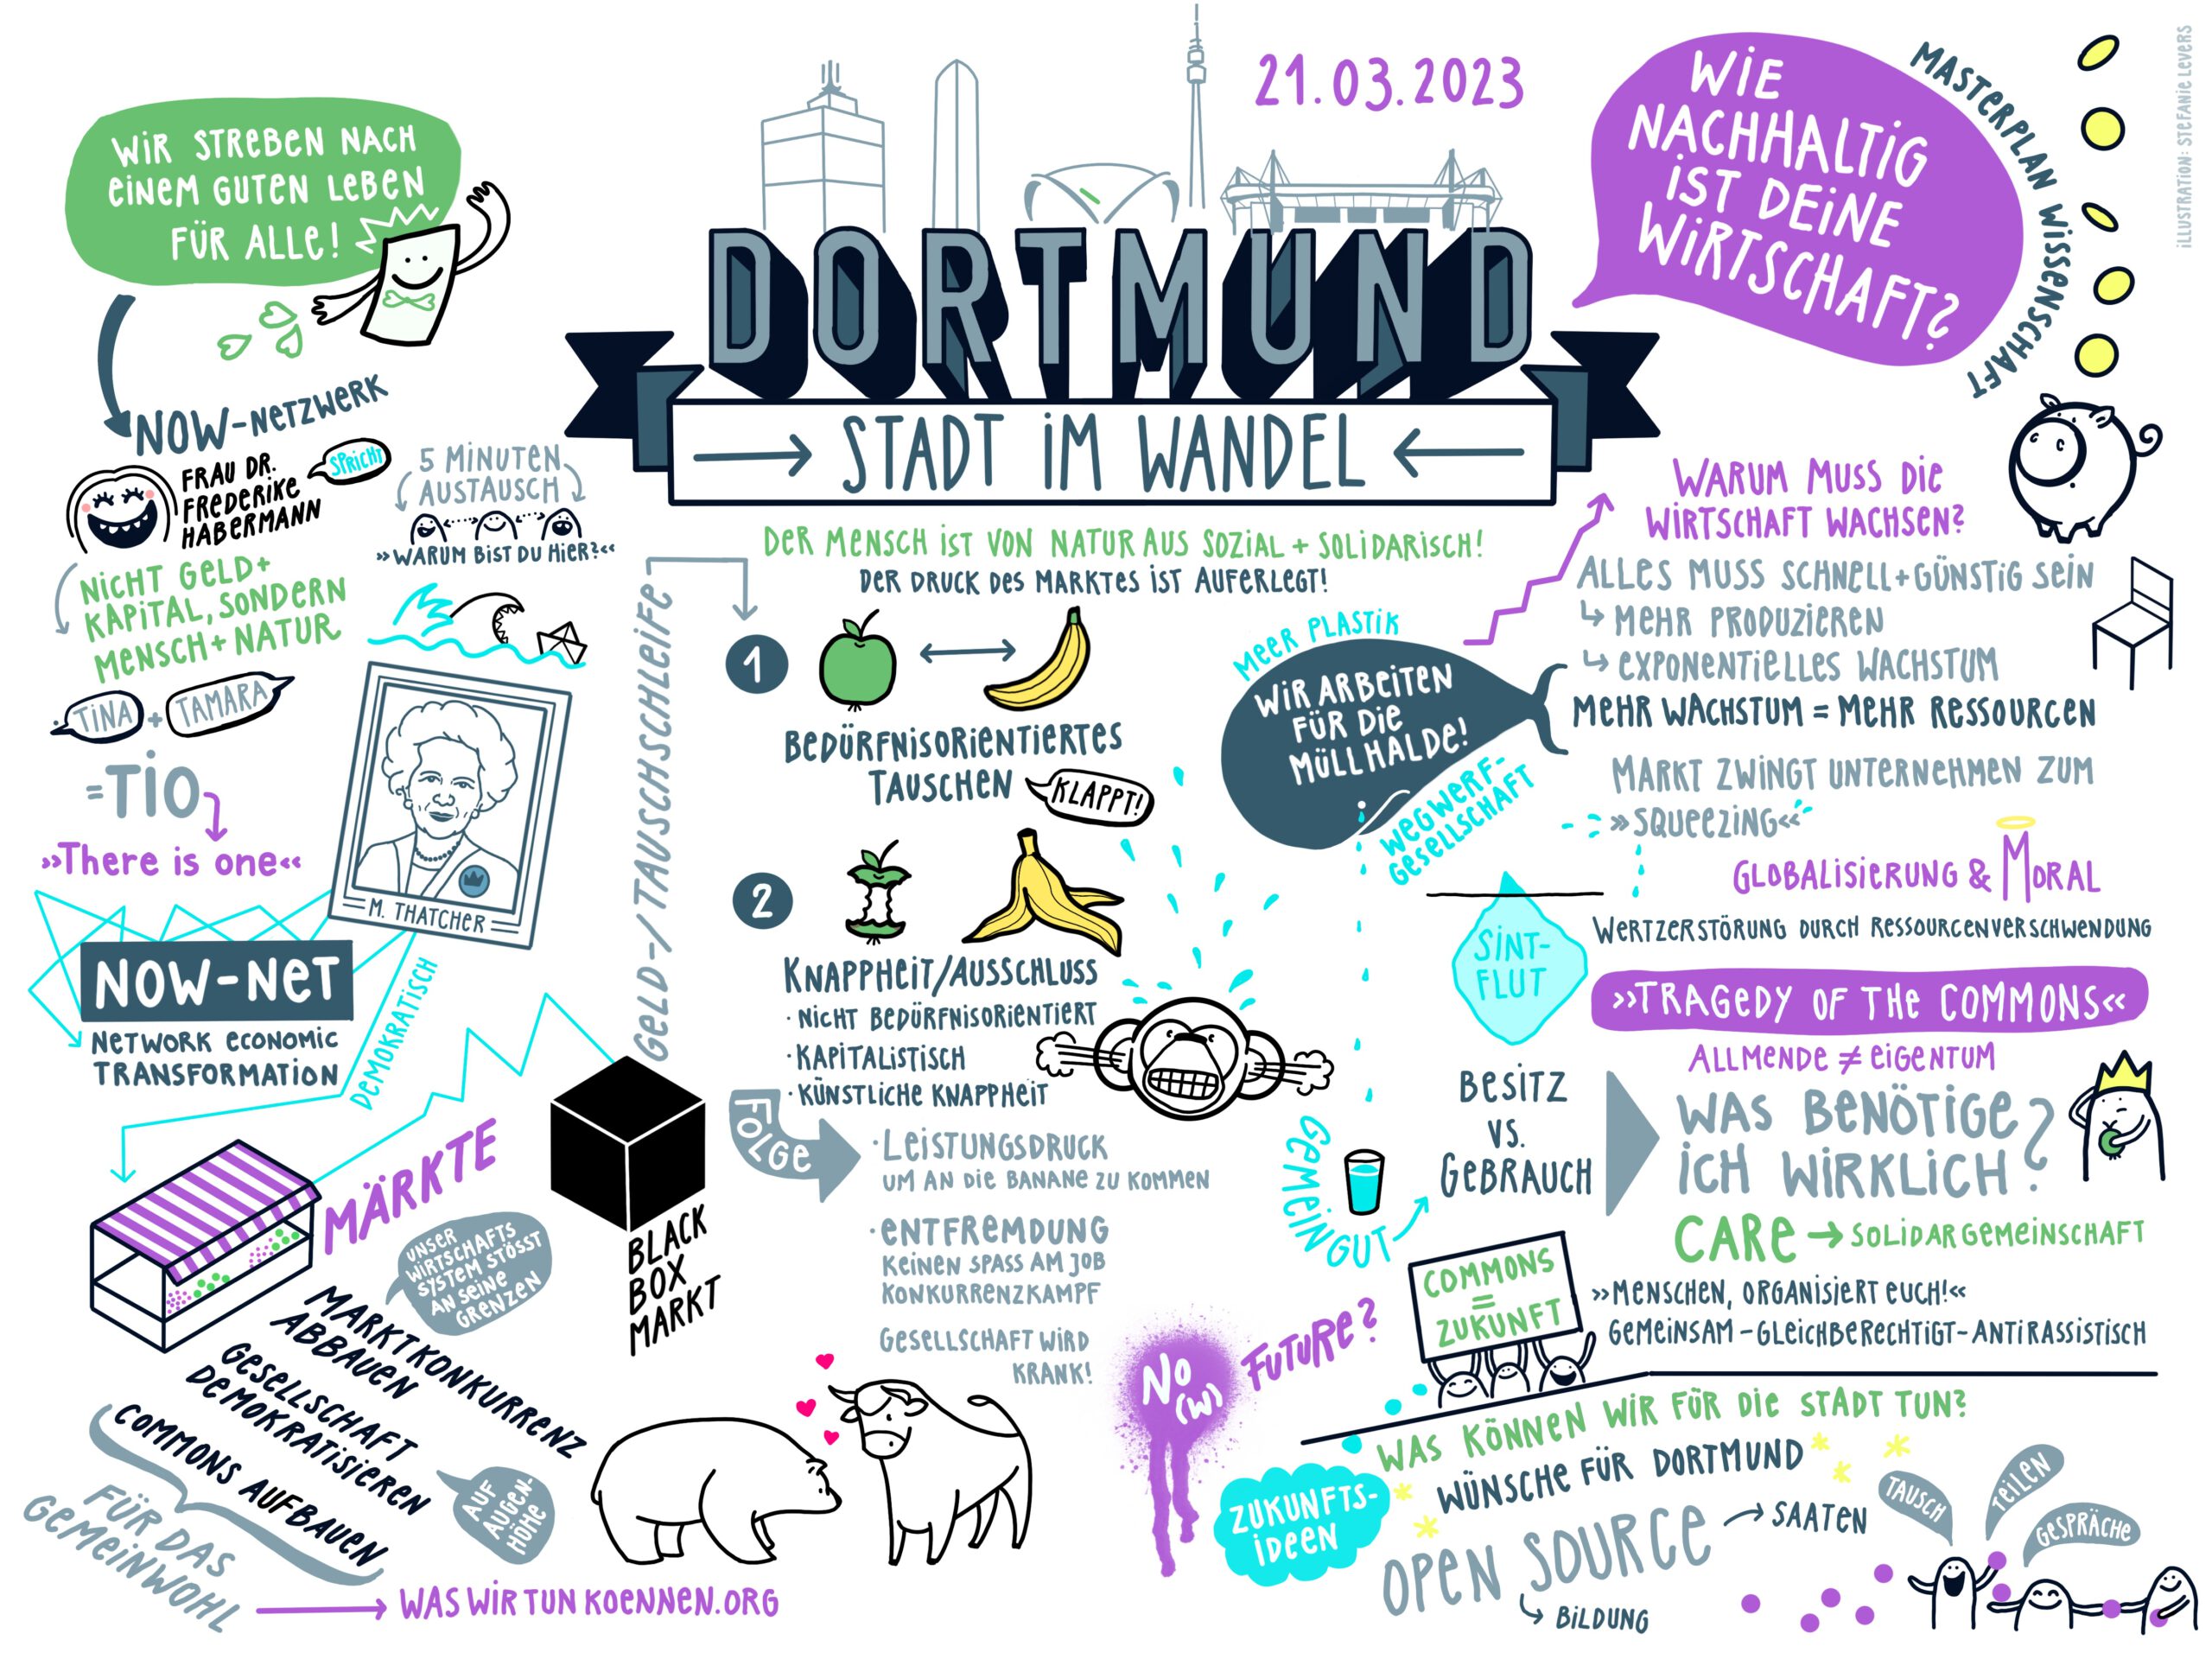 21.03.2023
DORTMUND
STADT IM WANDEL
WIR STREBEN NACH
EINEM GUTEN LEBEN
FÜR ALLE!
NOW-NETZWERK
FRAU DR.
FREDERIKE
HABERMANN
SPRICHT
5 MINUTEN
AUSTAUSCH
»WARUM BIST DU HIER?«
NICHT GELD+
KAPITAL, SONDERN
MENSCH + NATUR
TINA + TAMARA
=TIO
»There is one«
M. THATCHER
NOW-NET
NETWORK ECONOMIC
TRANSFORMATION
DEMOKRATISCH
MÄRKTE
UNSER
WIRTSCHAFTS
SYSTEM STÖSST
AN SEINE
GRENZEN
BLACK
BOX
MARKT
MARKTKONKURRENZ
ABBAUEN
GESELLSCHAFT
DEMOKRATISIEREN
COMMONS AUFBAUEN
AUF
AUGEN-
HÖHE
FÜR DAS
GEMEINWOHL
WAS WIR TUN KOENNEN.ORG
DER MENSCH IST VON NATUR AUS SOZIAL + SOLIDARISCH!
DER DRUCK DES MARKTES IST AUFERLEGT!
GELD-/TAUSCHSCHLEIFE
1
BEDÜRFNISORIENTIERTES
TAUSCHEN
KLAPPT!
2
KNAPPHEIT/AUSSCHLUSS
· NICHT BEDÜRFNISORIENTIERT
· KAPITALISTISCH
· KÜNSTLICHE KNAPPHEIT
FOLGE
· LEISTUNGSDRUCK
UM AN DIE BANANE ZU KOMMEN
· ENTFREMDUNG
KEINEN SPASS AM JOB
KONKURRENZKAMPF
GESELLSCHAFT WIRD
KRANK!
WIE
NACHHALTIG
IST DEINE
WIRTSCHAFT?
MASTERPLAN WISSENSCHAFT
ILLUSTRATION: STEFANIE LEVERS
WARUM MUSS DIE
WIRTSCHAFT WACHSEN?
ALLES MUSS SCHNELL + GÜNSTIG SEIN
MEHR PRODUZIEREN
EXPONENTIELLES WACHSTUM
MEHR WACHSTUM = MEHR RESSOURCEN
MEER PLASTIK
WIR ARBEITEN
FÜR DIE
MÜLLHALDE!
WEGWERF-
GESELLSCHAFT
MARKT ZWINGT UNTERNEHMEN ZUM
»SQUEEZING«
GLOBALISIERUNG & MORAL
WERTZERSTÖRUNG DURCH RESSOURCENVERSCHWENDUNG
SINT-
FLUT
»TRAGEDY OF THE COMMONS«
ALLMENDE ≠ EIGENTUM
BESITZ
VS.
GEBRAUCH
WAS BENÖTIGE
ICH WIRKLICH?
GEMEINGUT
CARE → SOLIDARGEMEINSCHAFT
COMMONS
=
ZUKUNFT
»MENSCHEN, ORGANISIERT EUCH!«
GEMEINSAM – GLEICHBERECHTIGT – ANTIRASSISTISCH
NO
(W)
FUTURE?
WAS KÖNNEN WIR FÜR DIE STADT TUN?
WÜNSCHE FÜR DORTMUND
ZUKUNFTS-
IDEEN
OPEN SOURCE → SAATEN
BILDUNG
TAUSCH
TEILEN
GESPRÄCHE